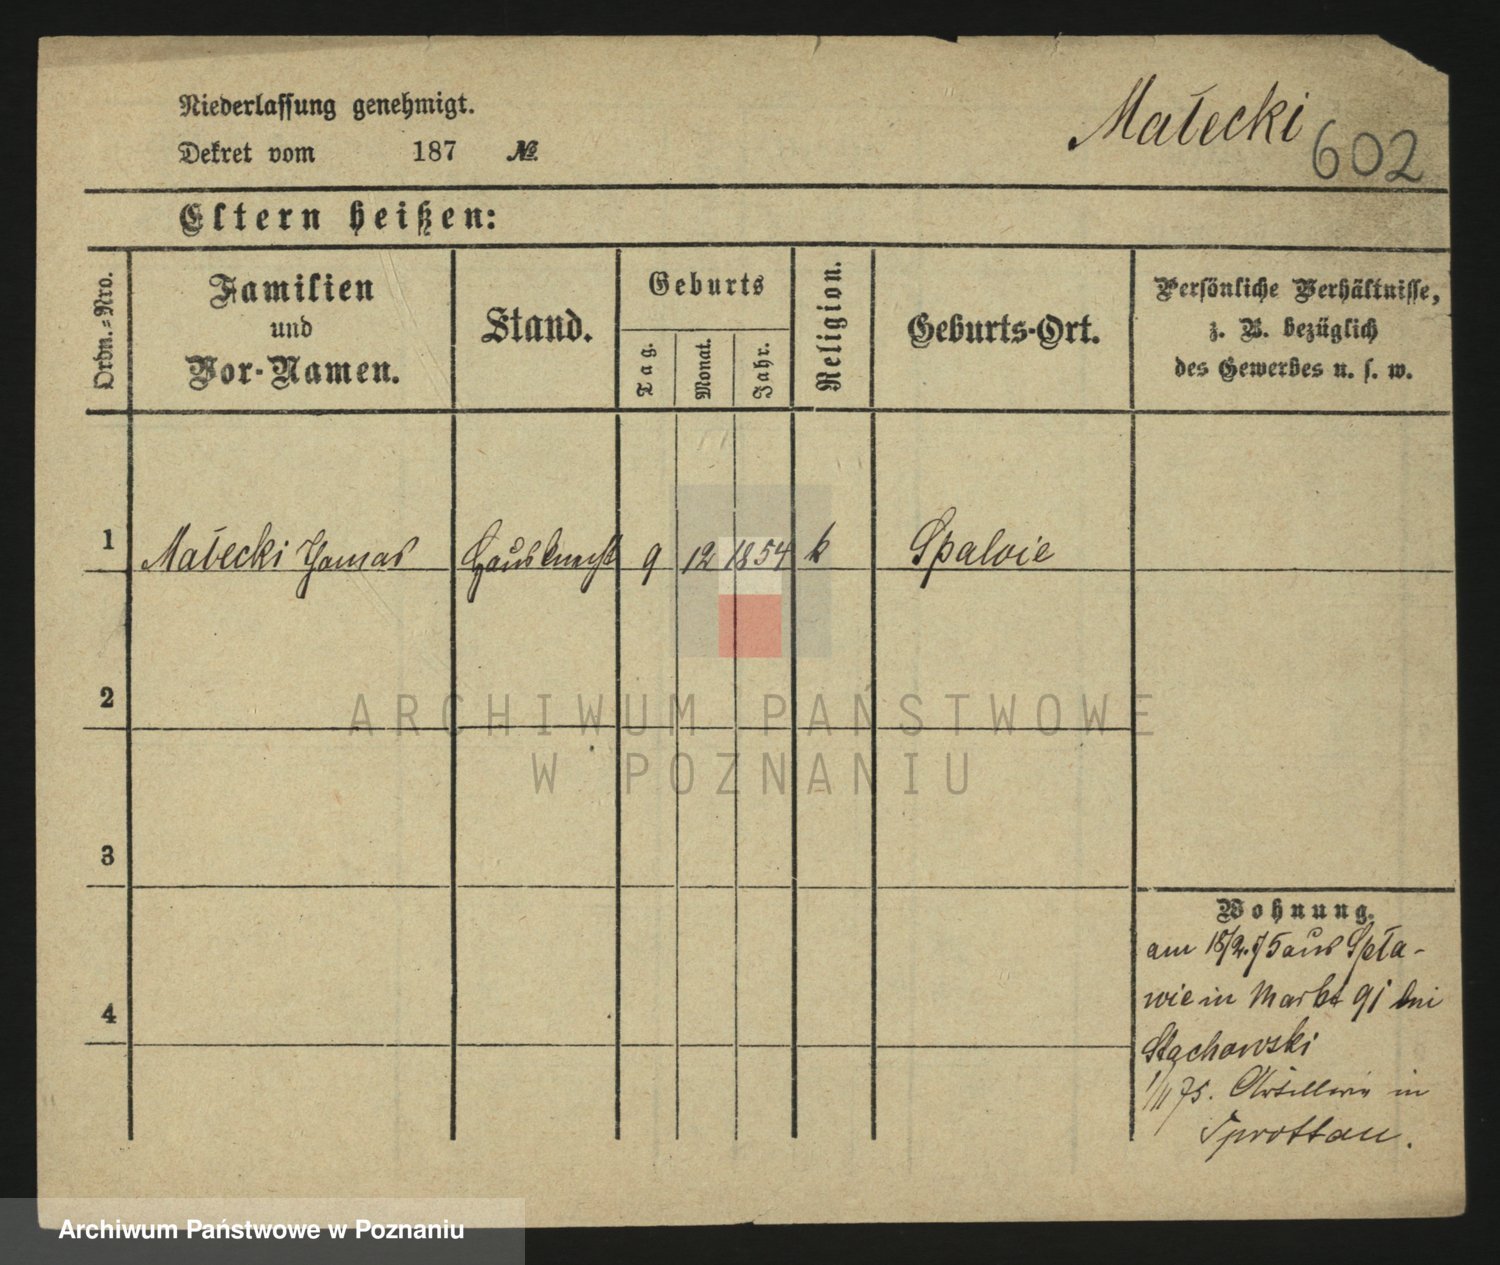 Niederlassung genehmigt.
Dekret vom 187 №
Małecki
602
Eltern heißen:
Ordn.=Nro.
Familien
und
Vor-Namen.
Stand.
Geburts
Tag.
Monat.
Jahr.
Religion.
Geburts-Ort.
Persönliche Verhältnisse,
z. B. bezüglich
des Gewerbes u. s. w.
1 Małecki Thomas Hausknecht 9 12 1854 k Spalvie
2
3
4
Wohnung.
am 18/2.75 aus Spła-
wie in Markt 91 bei
Stachowski
1/11 75. Artillerie in
Sprottau.
ARCHIWUM PAŃSTWOWE
W POZNANIU
Archiwum Państwowe w Poznaniu